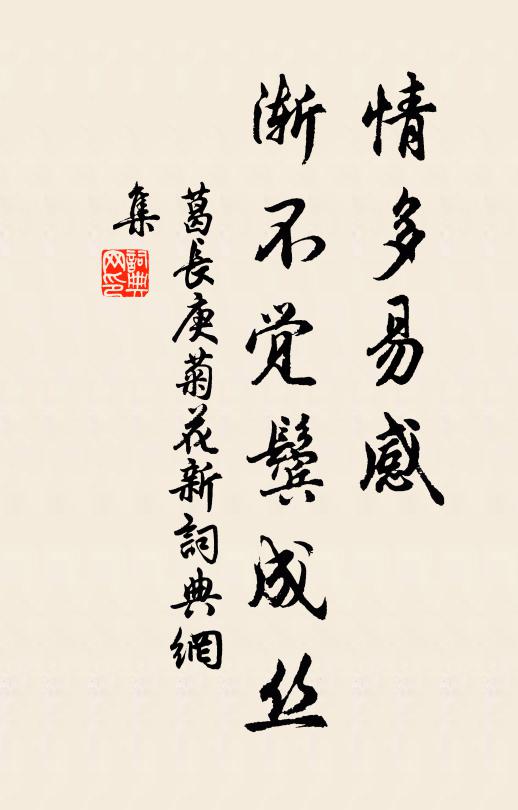 情多易感
渐不觉鬓成丝
葛長庚菊花新詞典網
集
詞典
网印